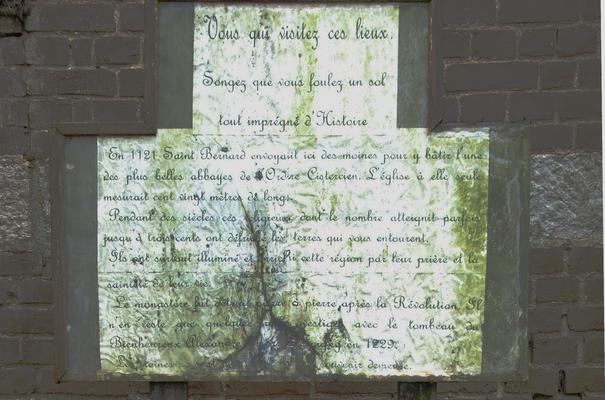 Vous qui visitez ces lieux.
Songez que vous foulez un sol
tout imprégné d'Histoire
En 1121 Saint Bernard envoyait ici des moines pour y bâtir l'une
des plus belles abbayes de l'Ordre Cistercien. L'église à elle seule
mesurait cent vingt mètres de long.
Pendant des siècles ces religieux dont le nombre atteignit parfois
jusqu'à trois cents ont défriché les terres qui vous entourent.
Ils ont surtout illuminé et enrichi cette région par leur prière et la
sainteté de leur vie.
Le monastère fut détruit pierre à pierre après la Révolution. Il
n'en reste que quelques vestiges avec le tombeau du
Bienheureux Alexandre en 1229.
souvenir demeure.